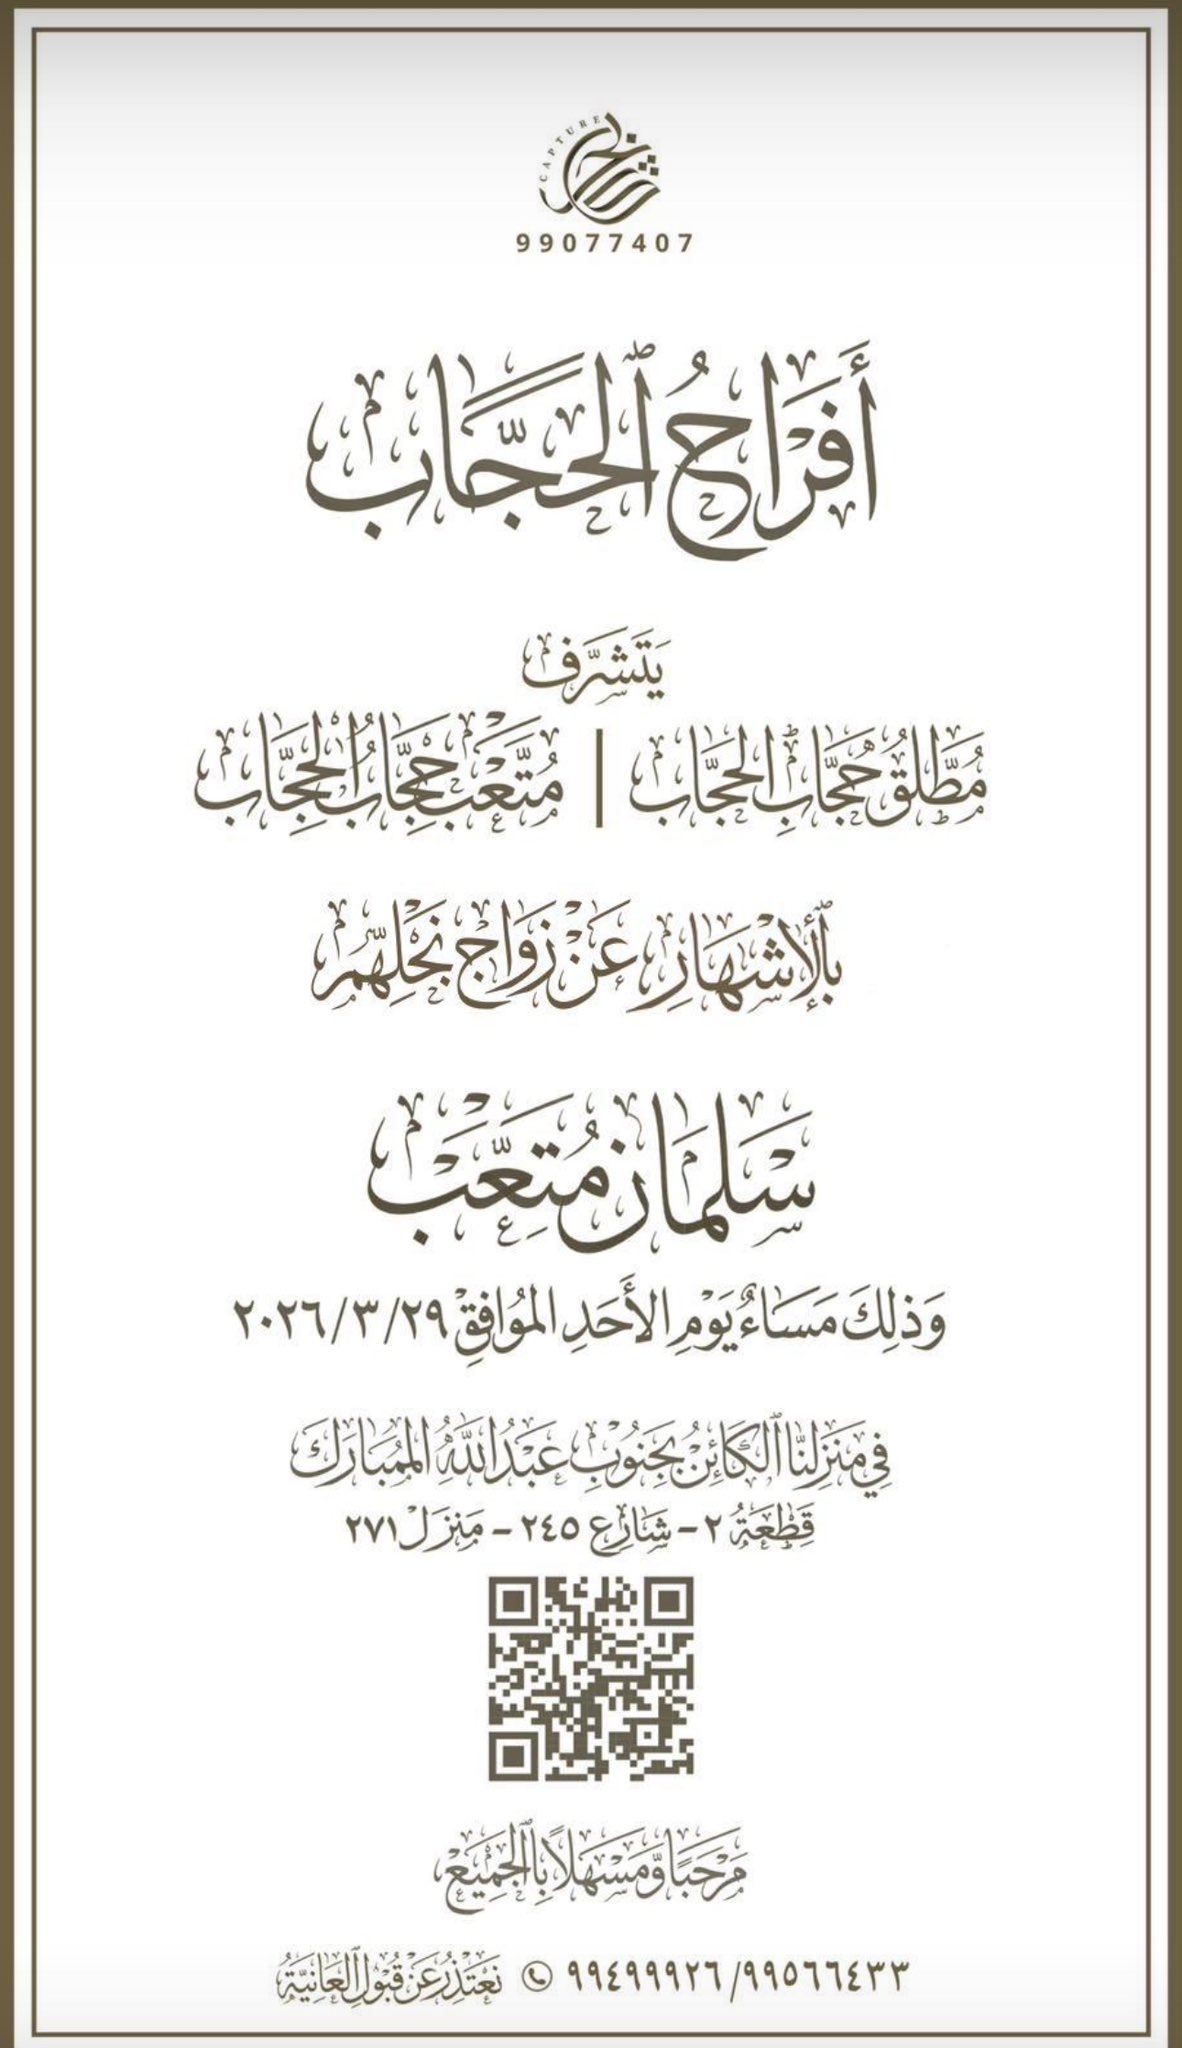 CAPTURE
99077407
أَفْرَاحُ ٱلحَجَّاب
يَتَشَرَّف
مُطَّلَقْ حُجَّابِ الحَجَّاب | مُتَّعَبْ حِجَّابُ الْحِجَّاب
بِٱلْإِشْهَارِ عَنْ زَوَاجِ نَجْلِهِمْ
سَلْمَان مُتَعِّبْ
وَذَلِكَ مَسَاءُ يَوْمِ الأَحَدِ المُوَافِقْ ٢٠٢٦/٣/٢٩
فِي مَنْزِلِنَا ٱلْكَائِنْ بِجَنُوبْ عَبْدُاللَّهْ المُبَارَكْ
قَطْعَةْ ٢ - شَارِع ٢٤٥ - مَنزَلْ ٢٧١
مَرْحَبًا وَمَسْهَلًا بِالْجَمِيعْ
٩٩٤٩٩٩٢٦/٩٩٥٦٦٤٣٣ نَعْتَذِرُ عَنْ قَبُولِ ٱلْعَانِيَّةُ